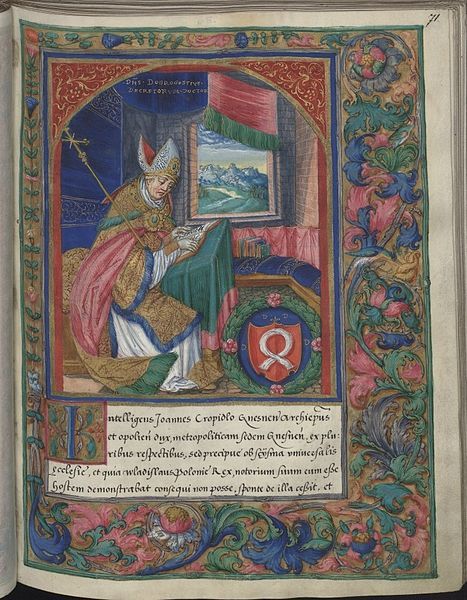 71
DNS DOBROGOSTIVS
DECRETORVM DOCTOR
Intelligens Joannes Cropidlo Gnesnen̄ Archiepus
et opolien̄ dux, metropoliticam sedem Gnesnen̄, ex plu-
ribus respectibus, sed precipue ob scisma universalis
ecclesie, et quia wladislaus Polonie Rex, notorium suum eum esse
hostem demonstrabat consequi non posse, sponte de illa cessit, et